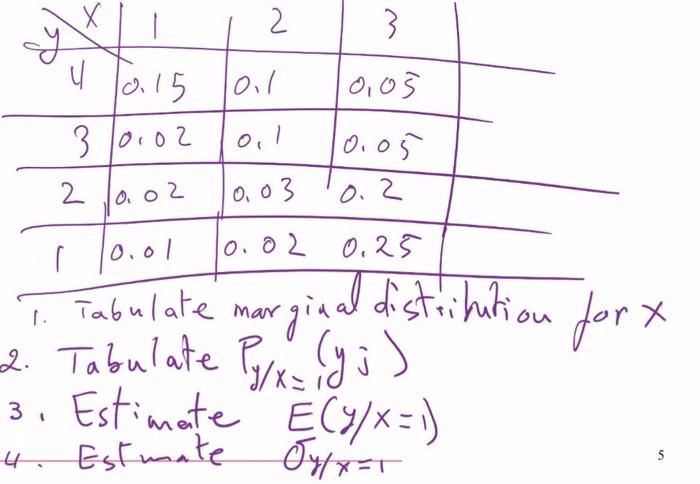 y x 1 2 3
4 0.15 0.1 0.05
3 0.02 0.1 0.05
2 0.02 0.03 0.2
1 0.01 0.02 0.25
1. Tabulate marginal distribution for x
2. Tabulate Py/x=1(yj)
3. Estimate E(y/x=1)
4. Estimate σy/x=1
5